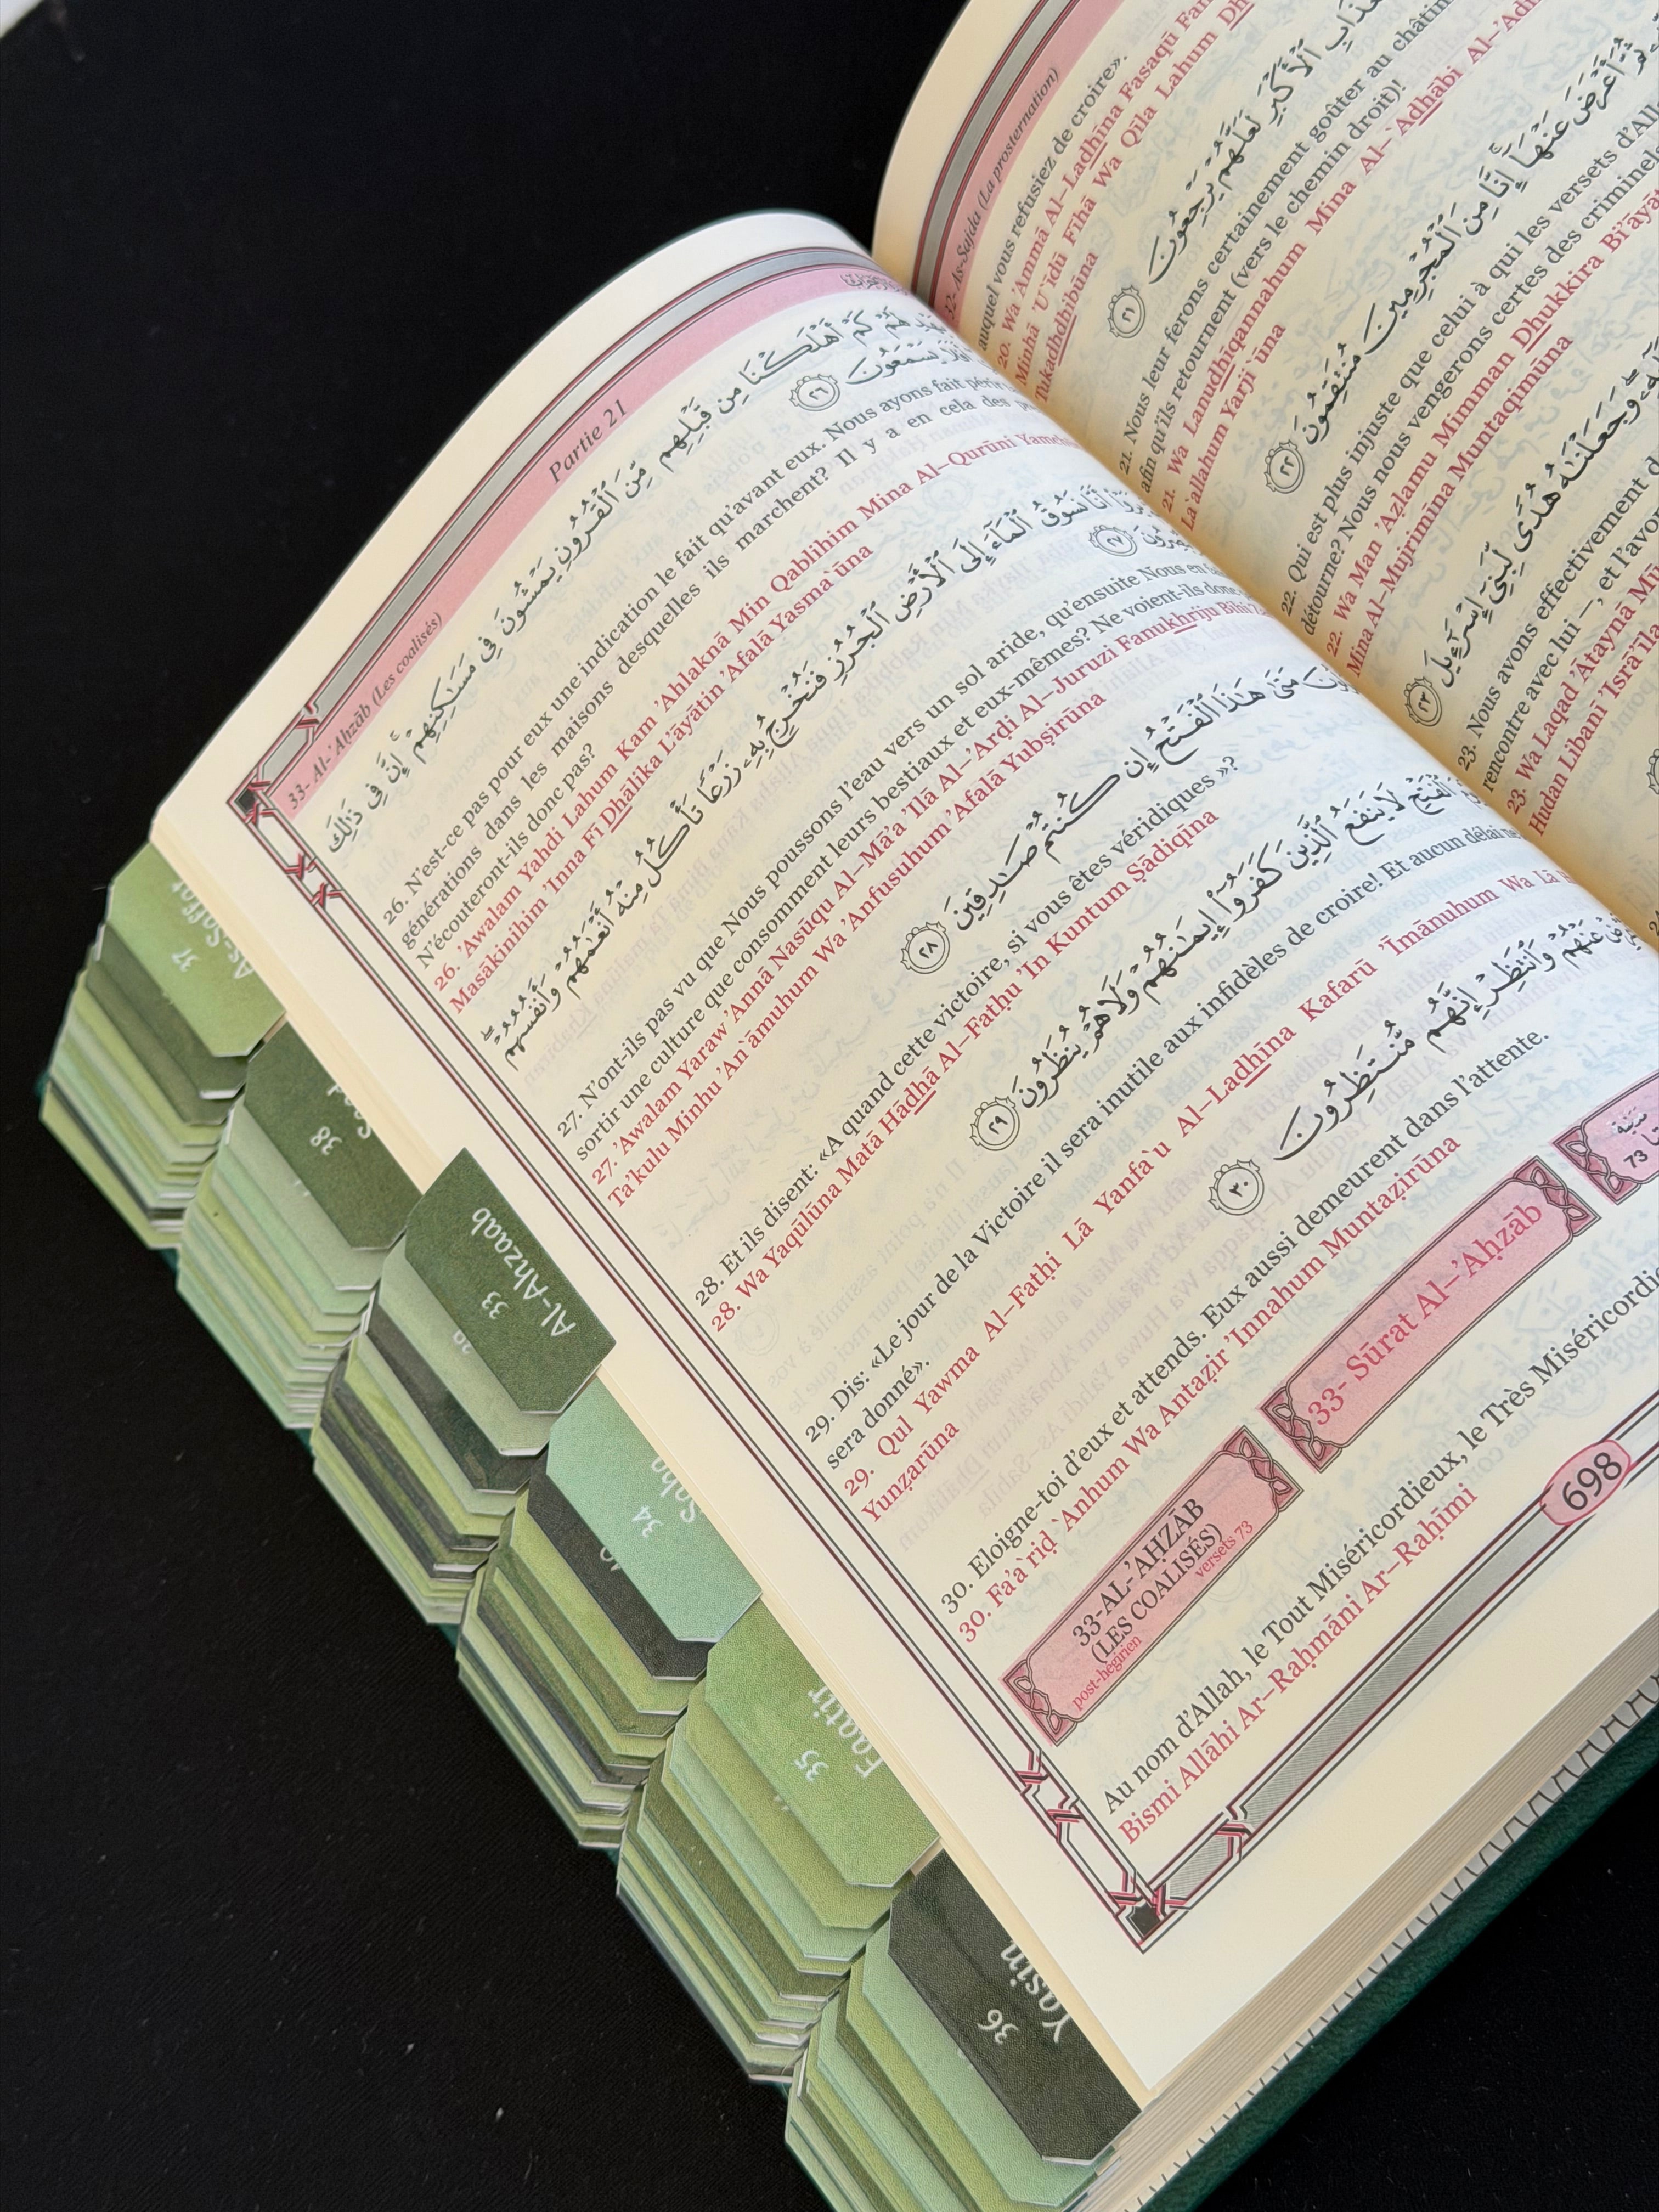 33- Al-'Ahzāb (Les coalisés)
Partie 21
هُمْ كَمْ أَهْلَكْنَا مِن قَبْلِهِم مِّنَ ٱلْقُرُونِ يَمْشُونَ فِى مَسَٰكِنِهِمْ ۚ إِنَّ فِى ذَٰلِكَ
يَسْمَعُونَ ٢٦
26. N'est-ce pas pour eux une indication le fait qu'avant eux. Nous ayons fait périr
générations dans les maisons desquelles ils marchent? Il y a en cela des
N'écouteront-ils donc pas?
26. 'Awalam Yahdi Lahum Kam 'Ahlaknā Min Qablihim Mina Al–Qurūni
Masākinihim 'Inna Fī Dhālika L'āyātin 'Afalā Yasma`ūna
أَنَّا نَسُوقُ ٱلْمَآءَ إِلَى ٱلْأَرْضِ ٱلْجُرُزِ فَنُخْرِجُ بِهِۦ زَرْعًا تَأْكُلُ مِنْهُ أَنْعَٰمُهُمْ وَأَنفُسُهُمْ ۖ
٢٧
27. N'ont-ils pas vu que Nous poussons l'eau vers un sol aride, qu'ensuite Nous en
sortir une culture que consomment leurs bestiaux et eux-mêmes? Ne voient-ils donc
27. 'Awalam Yaraw 'Annā Nasūqu Al–Mā'a 'Ilā Al–'Arḍi Al–Juruzi Fanukhriju Bihi
Ta'kulu Minhu 'An`āmuhum Wa 'Anfusuhum 'Afalā Yubṣirūna
مَتَىٰ هَٰذَا ٱلْفَتْحُ إِن كُنتُمْ صَٰدِقِينَ ٢٨
28. Et ils disent: «A quand cette victoire, si vous êtes véridiques »?
28. Wa Yaqūlūna Matá Hādhā Al–Fatḥu 'In Kuntum Ṣādiqīna
ٱلْفَتْحِ لَا يَنفَعُ ٱلَّذِينَ كَفَرُوٓا۟ إِيمَٰنُهُمْ وَلَا هُمْ يُنظَرُونَ ٢٩
29. Dis: «Le jour de la Victoire il sera inutile aux infidèles de croire! Et aucun délai ne
sera donné».
29. Qul Yawma Al–Fatḥi Lā Yanfa`u Al–Ladhīna Kafarū 'Īmānuhum Wa Lā
Yunẓarūna
عَنْهُمْ وَٱنتَظِرْ إِنَّهُم مُّنتَظِرُونَ ٣٠
30. Eloigne-toi d'eux et attends. Eux aussi demeurent dans l'attente.
30. Fa'a`riḍ `Anhum Wa Antaẓir 'Innahum Muntaẓirūna
33-AL-'AḤZĀB
(LES COALISÉS)
post-hégirien
versets 73
33- Sūrat Al–'Aḥzāb
73
Au nom d'Allah, le Tout Miséricordieux, le Très
Bismi Allāhi Ar–Raḥmāni Ar–Raḥīmi
698
32- As-Sajda (La prosternation)
auquel vous refusiez de croire».
20. Wa 'Ammā Al–Ladhīna Fasaqū
Minhā 'U`īdū Fīhā Wa Qīla Lahum
Tukadhdhibūna
ٱلْأَكْبَرِ لَعَلَّهُمْ يَرْجِعُونَ ٢١
21. Nous leur ferons certainement goûter au
afin qu'ils retournent (vers le chemin droit)!
21. Wa Lanudhīqannahum Mina Al–`Adhābi
La`allahum Yarji`ūna
أَعْرَضَ عَنْهَآ ۚ إِنَّا مِنَ ٱلْمُجْرِمِينَ مُنتَقِمُونَ ٢٢
22. Qui est plus injuste que celui à qui les versets
détourne? Nous nous vengerons certes des criminels
22. Wa Man 'Aẓlamu Mimman Dhukkira
Mina Al–Mujrimīna Muntaqimūna
وَجَعَلْنَٰهُ هُدًى لِّبَنِىٓ إِسْرَٰٓءِيلَ ٢٣
23. Nous avons effectivement
rencontre avec lui –, et
23. Wa Laqad 'Ātaynā
Hudan Libanī 'Isrā'īla
37
38
33
Al-Ahzaab
34
Saba
35
Faatir
36
Yasim